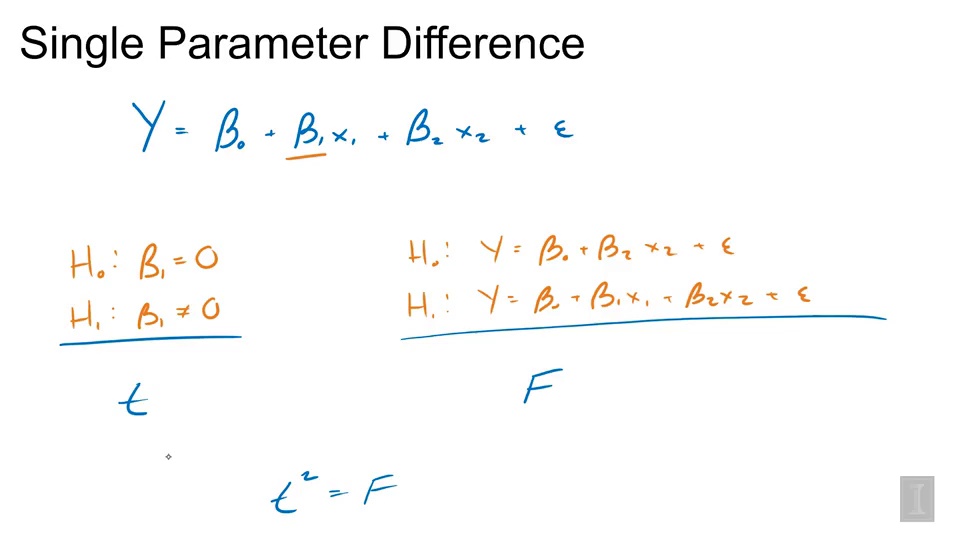 Single Parameter Difference
Y = β₀ + β₁x₁ + β₂x₂ + ε
H₀: β₁ = 0
H₁: β₁ ≠ 0
H₀: Y = β₀ + β₂x₂ + ε
H₁: Y = β₀ + β₁x₁ + β₂x₂ + ε
t
F
t² = F
I